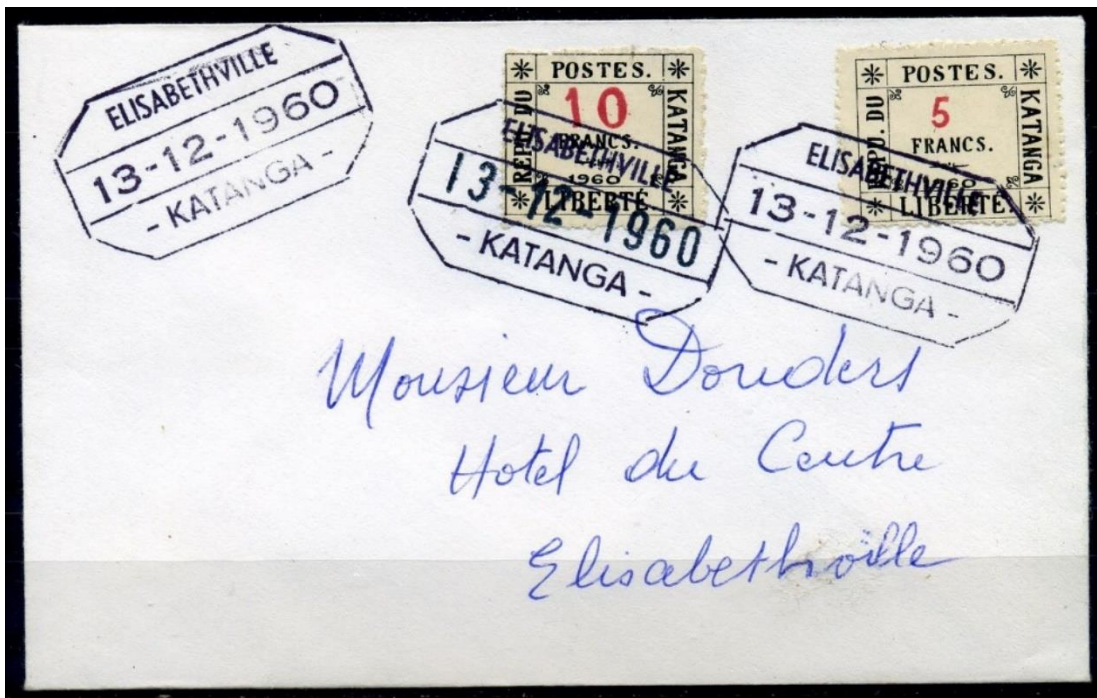 ELISABETHVILLE
13-12-1960
- KATANGA -
POSTES.
REPU. DU
10
KATANGA
FRANCS.
1960
LIBERTÉ
ELISABETHVILLE
13-12-1960
- KATANGA -
POSTES.
REPU. DU
5
KATANGA
FRANCS.
1960
LIBERTÉ
ELISABETHVILLE
13-12-1960
- KATANGA -
Monsieur Donders
Hotel du Centre
Elisabethville